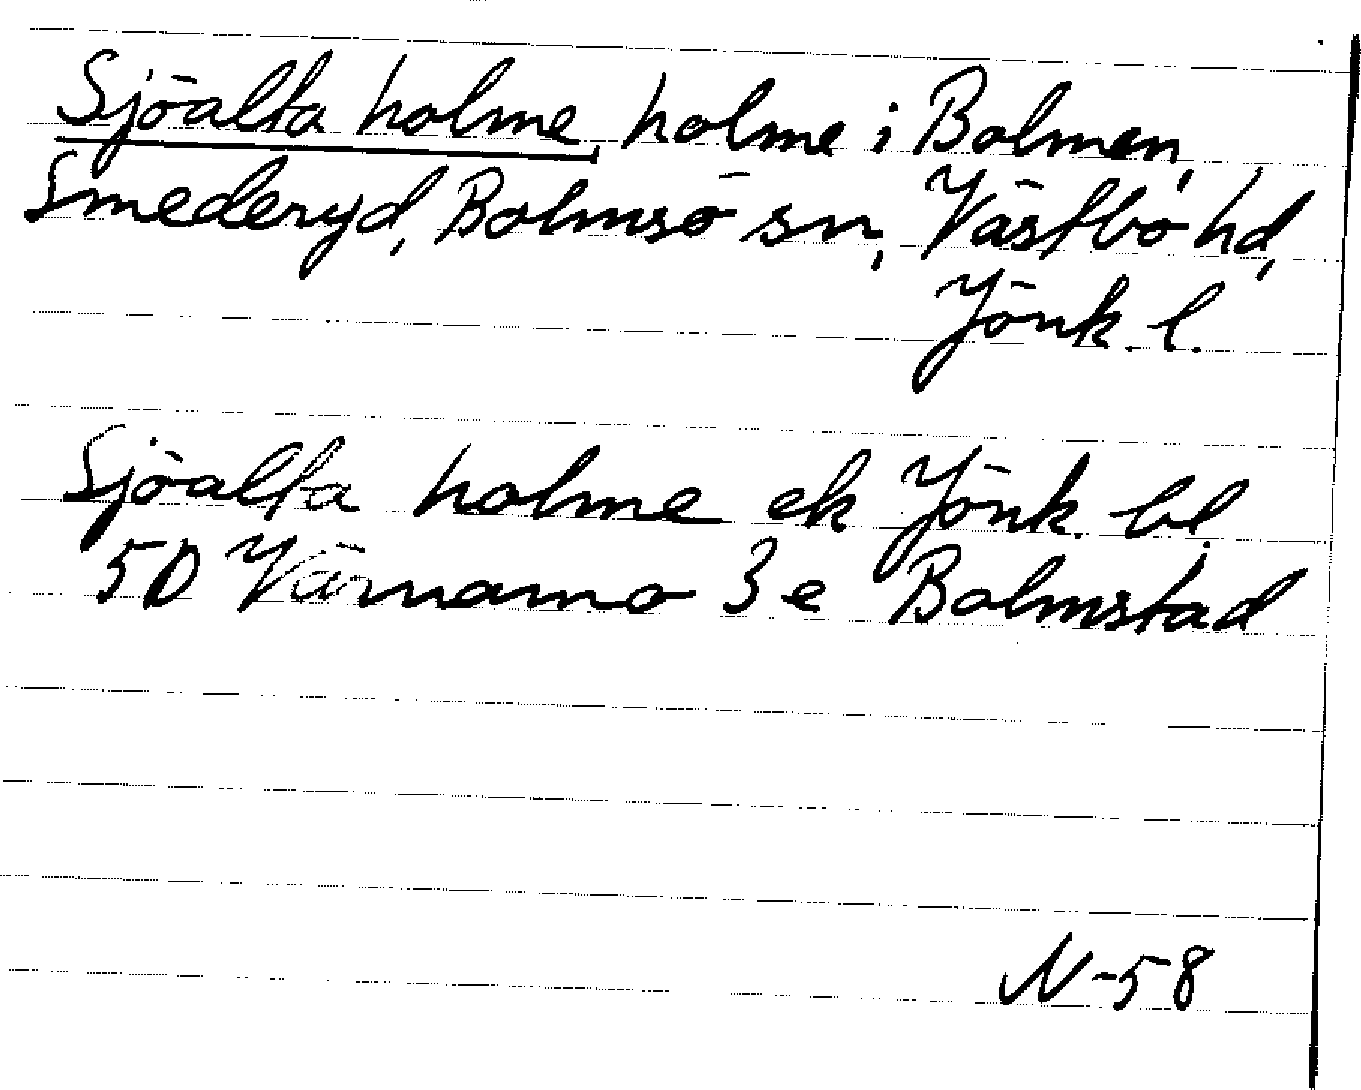 Sjöalta holme, holme i Bolmen,
Smederyd, Bolmsö sn, Västbo hd,
Jönk. l.
Sjöalta holme ek Jönk. bl.
5D Värnamo 3e Bolmstad
N-58